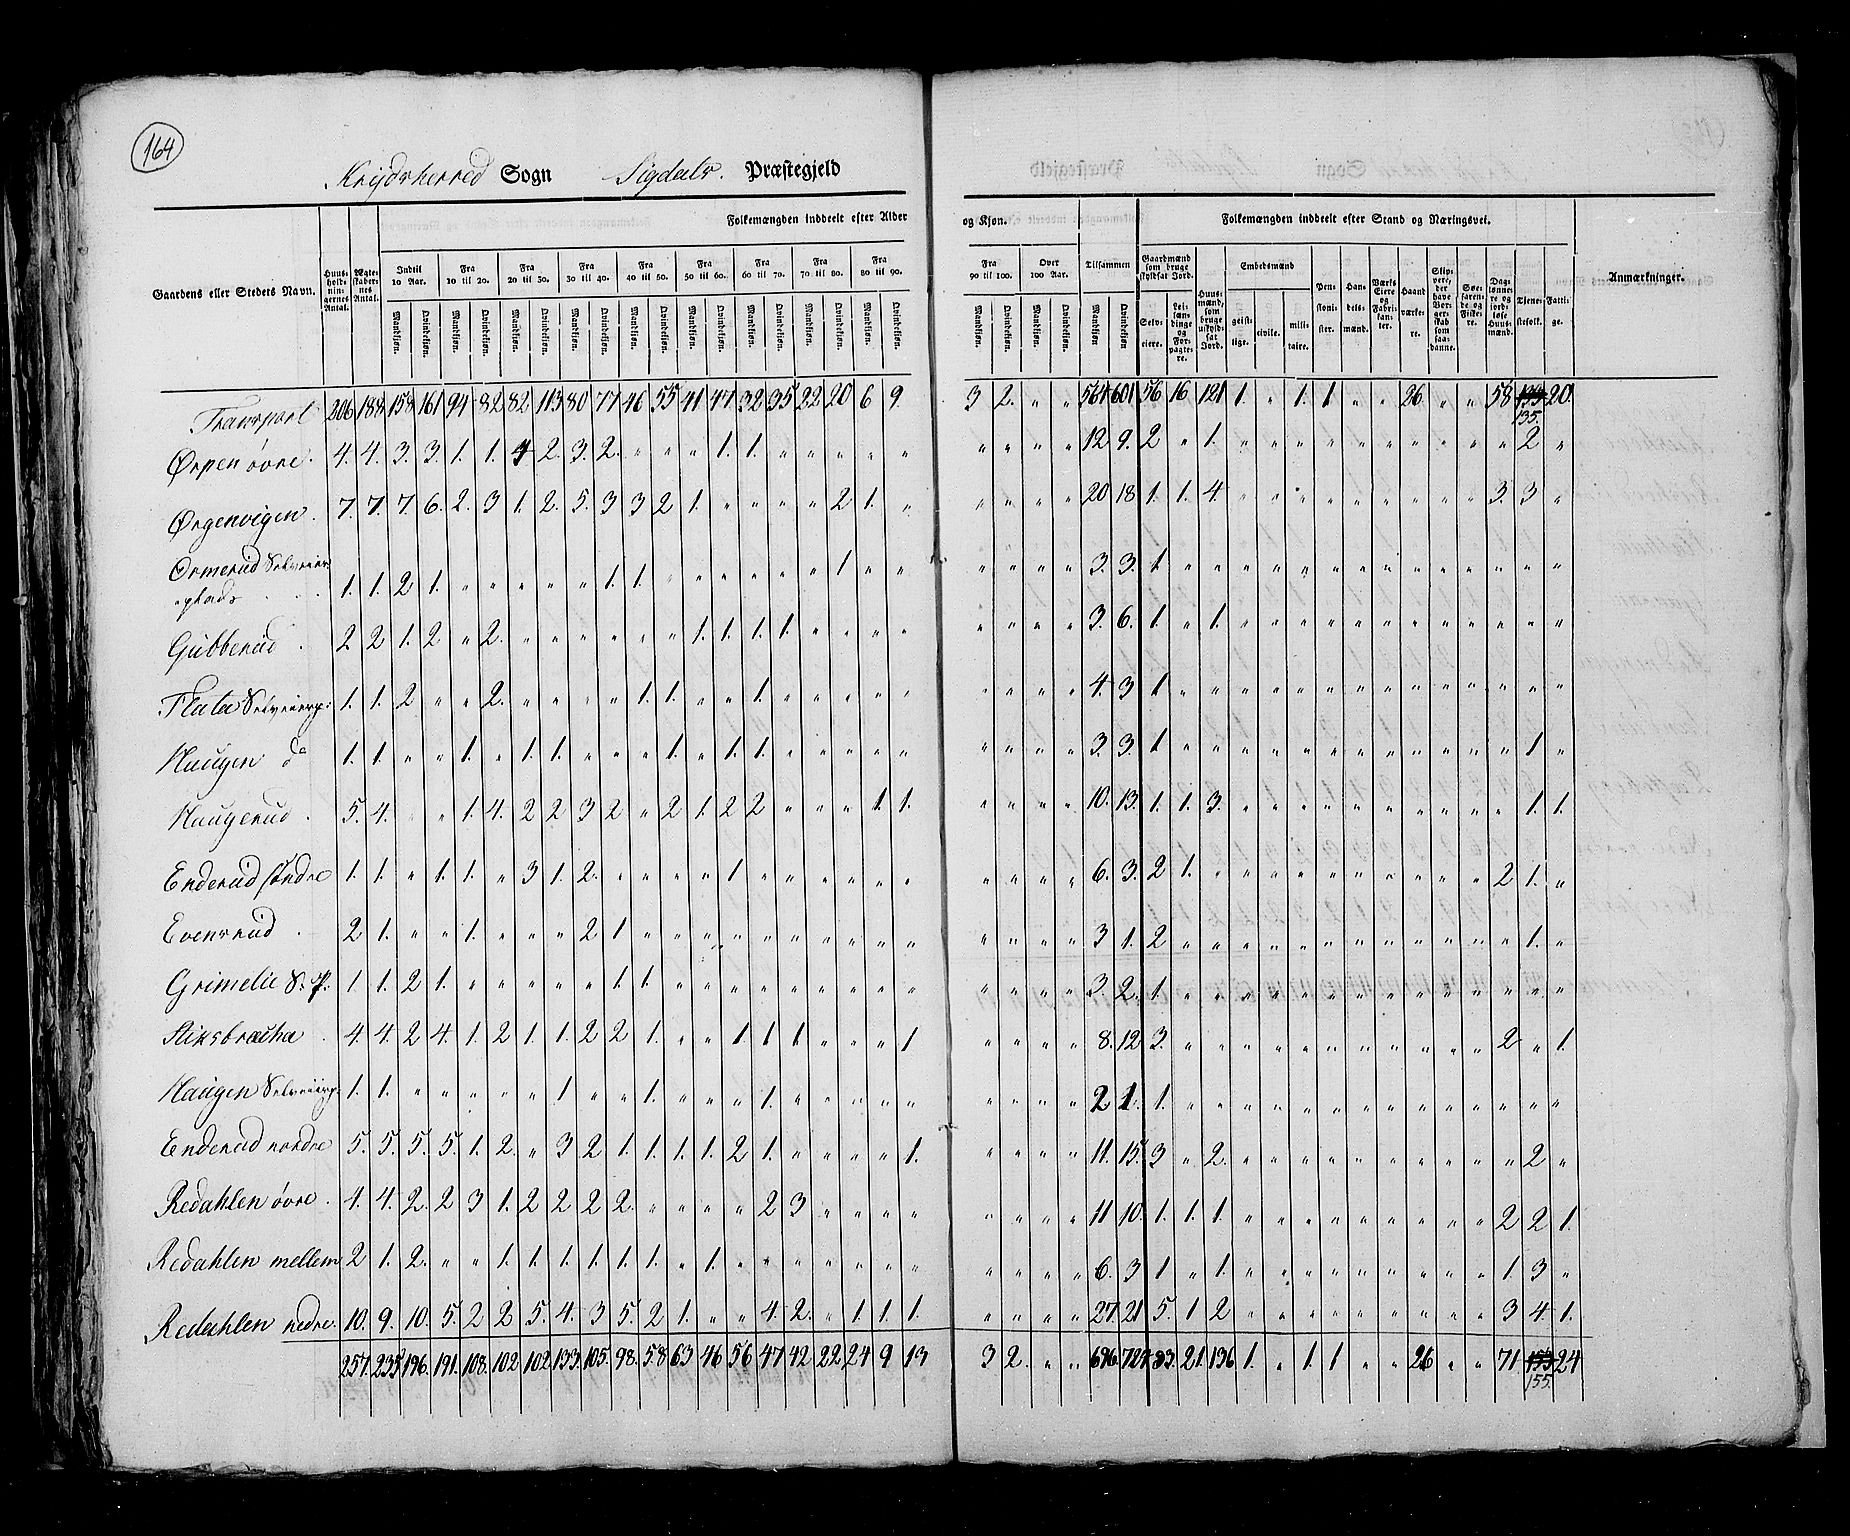 164
Krydsherred Sogn Sigdals Præstegjeld
Folkemængden inddeelt efter Alder og Kjøn. Folkemængden inddeelt efter Stand og Næringsvei.
Gaardens eller Stedets Navn. Huusholdningernes Antal. Ægteskabernes Antal. Indtil 10 Aar. Fra 10 til 20. Fra 20 til 30. Fra 30 til 40. Fra 40 til 50. Fra 50 til 60. Fra 60 til 70. Fra 70 til 80. Fra 80 til 90. Fra 90 til 100. Over 100 Aar. Tilsammen Gaardmænd som bruge skyldsat Jord. Huusmænd, som bruge uskyldsat Jord. Embedsmænd Pensionister. Handelsmænd. Værks Eiere og Fabrikanter. Haandværkere. Slipvere, der have Borgerskab som saadanne. Søefarende og Fiskere. Daglønnere og jordløse Huusmænd. Tjenestefolk. Fattige. Anmærkninger.
Mandkjøn. Qvindekjøn. Selveiere. Leilændinge og Forpagtere. geistlige. civile. militaire.
Transport 206 188 158 161 94 82 82 113 80 77 46 55 41 47 32 35 22 20 6 9. 3 2. " " 564 601 56 16 121 1. " 1. 1 " " 26 " " 58 135. 20.
Ørpen øvre. 4. 4. 3. 3. 1. 1. 4 2. 3. 2. " " " " 1. 1. " " " " " " " " 12 9. 2 " 1. " " " " " " " " " " 2 "
Ørgenvigen. 7. 7. 7. 6. 2. 3 1. 2. 5. 3 3 2 1. " " " " 2 1. " " " " " 20 18 1. 1. 4 " " " " " " " " " 3. 3 "
Ormerud Selveier-
plads 1. 1. 2 1. " " " " " 1. 1. " " " " " " 1 " " " " " " 3. 3. 1 " " " " " " " " " " " " " "
Gubberud 2 2 1. 2 " 2. " " " " " " 1. 1. 1. 1. " " " " " " " " 3. 6. 1. " 1. " " " " " " " " " " " "
Flata Selveierp: 1. 1. 2 " " 2. " " " " 1. 1. " " 1. " " " " " " " " " 4. 3 1 " " " " " " " " " " " " " "
Haugen do 1. 1. " " 1. " 1. 1. " " " 1. " 1. 1. " " " " " " " " " 3. 3. 1 " " " " " " " " " " " " 1 "
Haugerud 5. 4. " " 1. 4. 2 2 3 2 " 2 1. 2 2 " " " 1. 1. " " " " 10. 13. 1. 1. 3. " " " " " " " " " " 1. 1.
Enderud søndre 1. 1. " 1. 1. " 3 1. 2. " " " " 1 " " " " " " " " " " 6. 3. 2 1. " " " " " " " " " " 2 1. "
Evensrud 2 1. " " 1. " " " 2 1 " " " " " " " " " " " " " " 3 1. 2 " " " " " " " " " " " " 1. "
Grimelie S: P: 1 1. 2 1. " " " " " 1. 1. " " " " " " " " " " " " " 3. 2. 1 " " " " " " " " " " " " " "
Stiksbraatha 4. 4. 2 4. 1. 2 1. 1. 2 2 1. " " 1. 1. 1 " " " 1 " " " " 8. 12 3. " " " " " " " " " " " 2 " 1.
Haugen Selveierp. 1. 1. " " " " " 1 " " 1. " " " 1. " " " " " " " " " 2 1. 1. " " " " " " " " " " " " " "
Enderud nordre 5. 5. 5. 5. 1. 2. " 3 2 1. 1. 1. 1. 2 1. " " " " 1. " " " " 11. 15. 3 " 2. " " " " " " " " " " 2 "
Redahlen øvre. 4. 4. 2. 2 3 1. 2 2 2 2. " " " " 2 3 " " " " " " " " 11 10. 1. 1. 1. " " " " " " " " " 2 2 1.
Redahlen mellem 2 1. 2. " " 1. 1. 1. 1. 1. 1. " 1. " " " " " " " " " " " 6. 3 1 " 1. " " " " " " " " " 1. 3 "
Redahlen nedre. 10. 9. 10. 5. 2 2 5. 4. 3 5. 2 1. " " 4. 2. " 1. 1. 1. " " " " 27. 21 5. 1 2 " " " " " " " " " 3 4. 1.
257. 235 196. 191. 108. 102 102. 133. 105. 98. 58. 63 46 56. 47 42 22 24 9 13 3 2. " " 696 724 83. 21. 136 1. " 1. 1 " " 26 " " 71. 155. 24